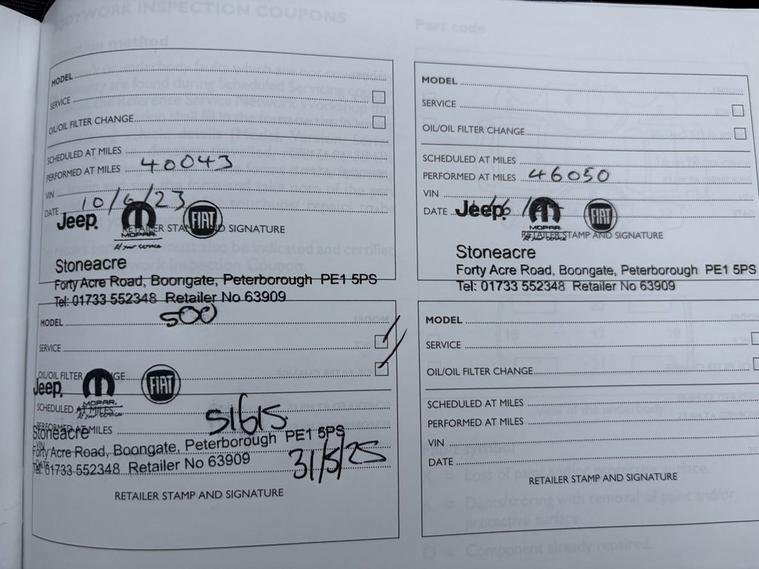 MODEL
SERVICE
OIL/OIL FILTER CHANGE
SCHEDULED AT MILES
PERFORMED AT MILES 40043
VIN
DATE 10/6/23
Jeep MOPAR FIAT
RETAILER STAMP AND SIGNATURE
Stoneacre
Forty Acre Road, Boongate, Peterborough PE1 5PS
Tel: 01733 552348 Retailer No 63909
MODEL
SERVICE
OIL/OIL FILTER CHANGE
SCHEDULED AT MILES
PERFORMED AT MILES 46050
VIN
DATE
Jeep MOPAR FIAT
RETAILER STAMP AND SIGNATURE
Stoneacre
Forty Acre Road, Boongate, Peterborough PE1 5PS
Tel: 01733 552348 Retailer No 63909
MODEL 500
SERVICE
OIL/OIL FILTER CHANGE
Jeep MOPAR FIAT
SCHEDULED AT MILES
PERFORMED AT MILES 51615
Stoneacre
Forty Acre Road, Boongate, Peterborough PE1 5PS
Tel: 01733 552348 Retailer No 63909
31/5/25
RETAILER STAMP AND SIGNATURE
MODEL
SERVICE
OIL/OIL FILTER CHANGE
SCHEDULED AT MILES
PERFORMED AT MILES
VIN
DATE
RETAILER STAMP AND SIGNATURE